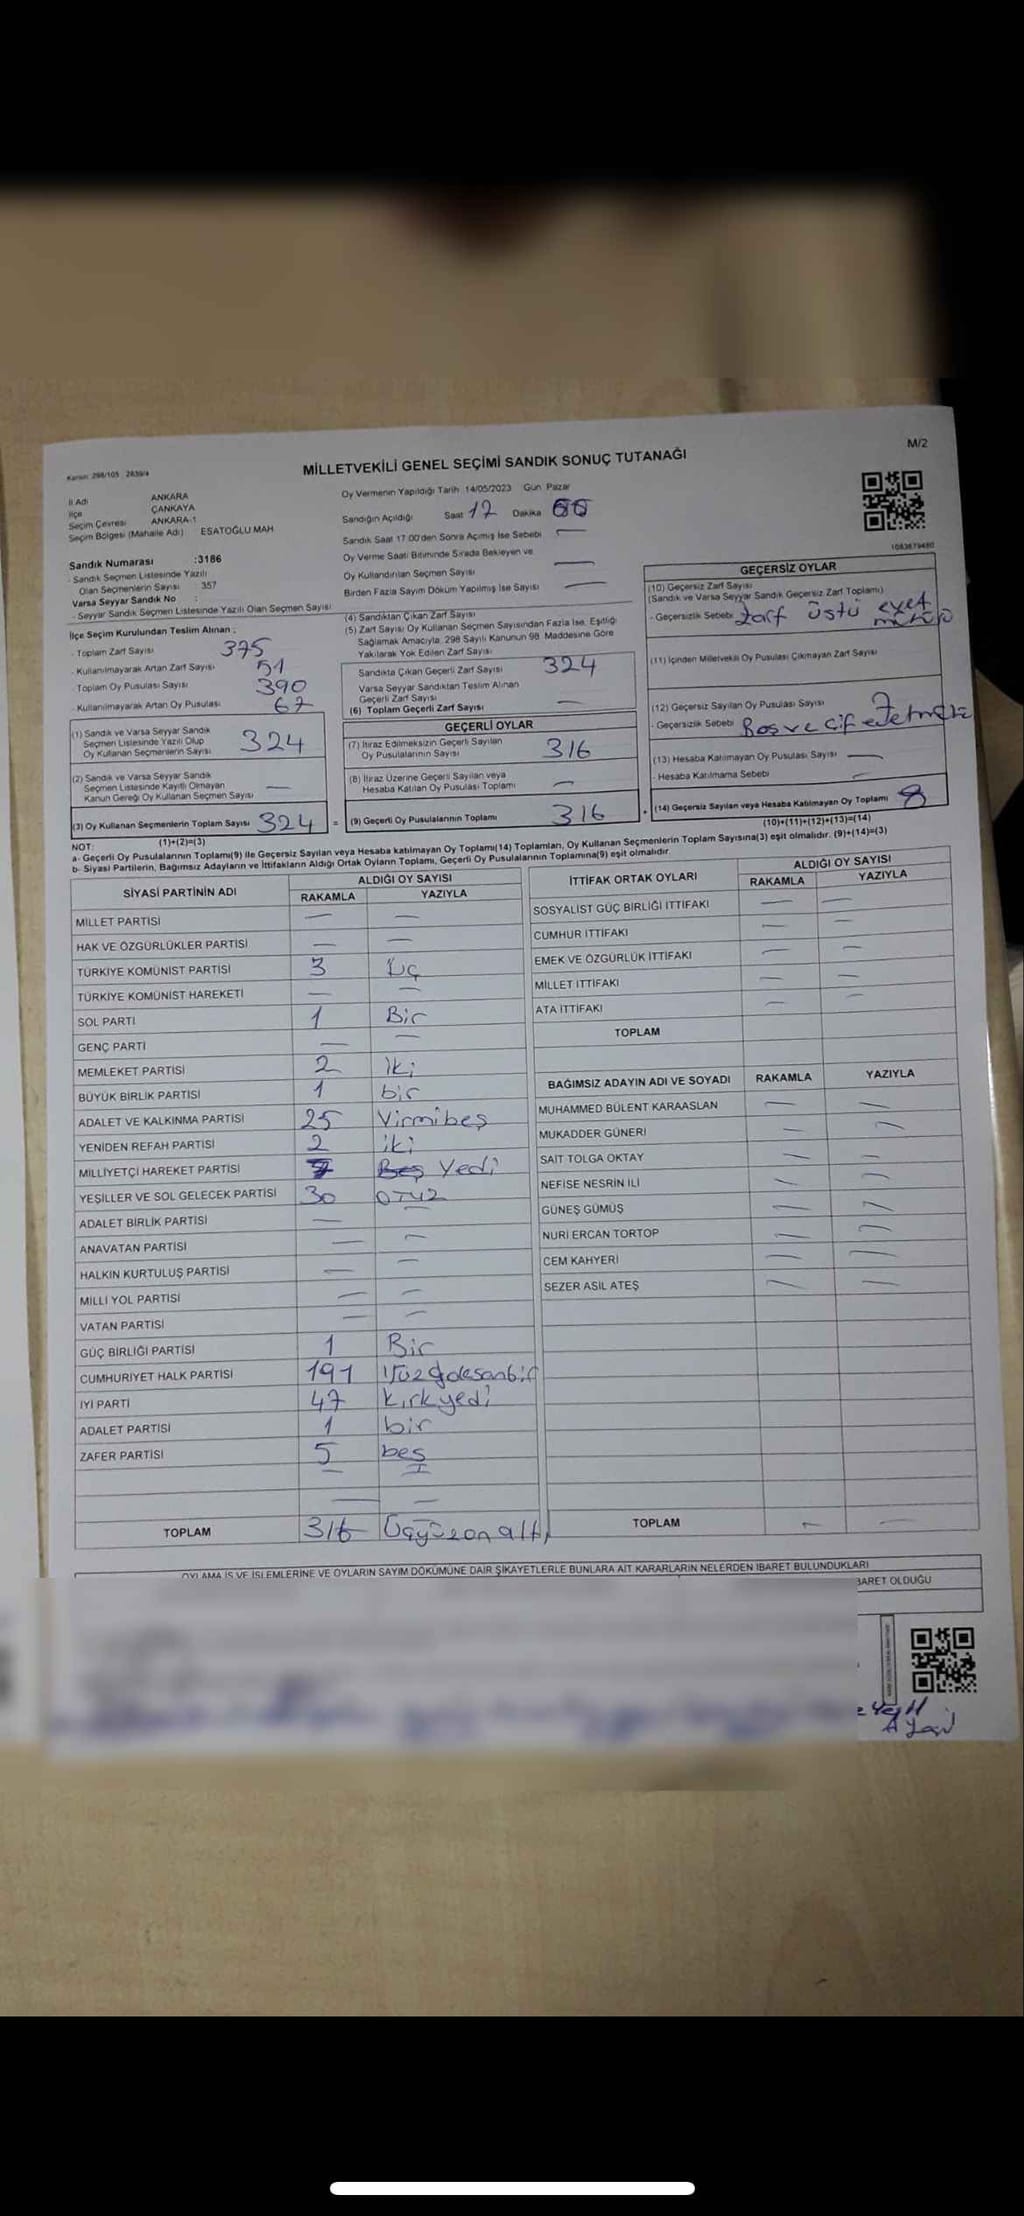 M/2
MİLLETVEKİLİ GENEL SEÇİMİ SANDIK SONUÇ TUTANAĞI
Kanun: 298/105 2839/4
İl Adı ANKARA
İlçe ÇANKAYA
Seçim Çevresi ANKARA-1
Seçim Bölgesi (Mahalle Adı) ESATOĞLU MAH
Sandık Numarası :3186
- Sandık Seçmen Listesinde Yazılı
Olan Seçmenlerin Sayısı 357
Varsa Seyyar Sandık No :
- Seyyar Sandık Seçmen Listesinde Yazılı Olan Seçmen Sayısı
İlçe Seçim Kurulundan Teslim Alınan :
- Toplam Zarf Sayısı 375
- Kullanılmayarak Artan Zarf Sayısı 51
- Toplam Oy Pusulası Sayısı 390
- Kullanılmayarak Artan Oy Pusulası 67
(1) Sandık ve Varsa Seyyar Sandık
Seçmen Listesinde Yazılı Olup
Oy Kullanan Seçmenlerin Sayısı 324
(2) Sandık ve Varsa Seyyar Sandık
Seçmen Listesinde Kayıtlı Olmayan
Kanun Gereği Oy Kullanan Seçmen Sayısı —
(3) Oy Kullanan Seçmenlerin Toplam Sayısı 324 =
(1)+(2)=(3)
Oy Vermenin Yapıldığı Tarih 14/05/2023 Gün Pazar
Sandığın Açıldığı Saat 17 Dakika
Sandık Saat 17.00'den Sonra Açımış İse Sebebi —
Oy Verme Saati Bitiminde Sırada Bekleyen ve
Oy Kullandırılan Seçmen Sayısı —
Birden Fazla Sayım Döküm Yapılmış İse Sayısı —
(4) Sandıktan Çıkan Zarf Sayısı
(5) Zarf Sayısı Oy Kullanan Seçmen Sayısından Fazla İse, Eşitliği
Sağlamak Amacıyla, 298 Sayılı Kanunun 98. Maddesine Göre
Yakılarak Yok Edilen Zarf Sayısı
Sandıkta Çıkan Geçerli Zarf Sayısı 324
Varsa Seyyar Sandıktan Teslim Alınan
Geçerli Zarf Sayısı
(6) Toplam Geçerli Zarf Sayısı —
GEÇERLİ OYLAR
(7) İtiraz Edilmeksizin Geçerli Sayılan
Oy Pusulalarının Sayısı 316
(8) İtiraz Üzerine Geçerli Sayılan veya
Hesaba Katılan Oy Pusulası Toplamı —
(9) Geçerli Oy Pusulalarının Toplamı 316 +
1083679480
GEÇERSİZ OYLAR
(10) Geçersiz Zarf Sayısı
(Sandık ve Varsa Seyyar Sandık Geçersiz Zarf Toplamı)
- Geçersizlik Sebebi Zarf üstü evet
mührü
(11) İçinden Milletvekili Oy Pusulası Çıkmayan Zarf Sayısı
(12) Geçersiz Sayılan Oy Pusulası Sayısı 7
- Geçersizlik Sebebi Boş ve
(13) Hesaba Katılmayan Oy Pusulası Sayısı —
- Hesaba Katılmama Sebebi —
(14) Geçersiz Sayılan veya Hesaba Katılmayan Oy Toplamı 8
(10)+(11)+(12)+(13)=(14)
NOT:
a- Geçerli Oy Pusulalarının Toplamı(9) ile Geçersiz Sayılan veya Hesaba katılmayan Oy Toplamı(14) Toplamları, Oy Kullanan Seçmenlerin Toplam Sayısına(3) eşit olmalıdır. (9)+(14)=(3)
b- Siyasi Partilerin, Bağımsız Adayların ve İttifakların Aldığı Ortak Oyların Toplamı, Geçerli Oy Pusulalarının Toplamına(9) eşit olmalıdır.
SİYASİ PARTİNİN ADI ALDIĞI OY SAYISI
RAKAMLA YAZIYLA
MİLLET PARTİSİ — —
HAK VE ÖZGÜRLÜKLER PARTİSİ — —
TÜRKİYE KOMÜNİST PARTİSİ 3 Üç
TÜRKİYE KOMÜNİST HAREKETİ — —
SOL PARTİ 1 Bir
GENÇ PARTİ — —
MEMLEKET PARTİSİ 2 iki
BÜYÜK BİRLİK PARTİSİ 1 bir
ADALET VE KALKINMA PARTİSİ 25 Yirmibeş
YENİDEN REFAH PARTİSİ 2 iki
MİLLİYETÇİ HAREKET PARTİSİ 7 Beş Yedi
YEŞİLLER VE SOL GELECEK PARTİSİ 30 OTUZ
ADALET BİRLİK PARTİSİ —
ANAVATAN PARTİSİ — —
HALKIN KURTULUŞ PARTİSİ — —
MİLLİ YOL PARTİSİ — —
VATAN PARTİSİ — —
GÜÇ BİRLİĞİ PARTİSİ 1 Bir
CUMHURİYET HALK PARTİSİ 191 Yüzdoksanbir
İYİ PARTİ 47 Kırkyedi
ADALET PARTİSİ 1 bir
ZAFER PARTİSİ 5 beş
TOPLAM 316 Üçyüzonaltı
İTTİFAK ORTAK OYLARI ALDIĞI OY SAYISI
RAKAMLA YAZIYLA
SOSYALİST GÜÇ BİRLİĞİ İTTİFAKI — —
CUMHUR İTTİFAKI — —
EMEK VE ÖZGÜRLÜK İTTİFAKI — —
MİLLET İTTİFAKI — —
ATA İTTİFAKI — —
TOPLAM
BAĞIMSIZ ADAYIN ADI VE SOYADI RAKAMLA YAZIYLA
MUHAMMED BÜLENT KARAASLAN — —
MUKADDER GÜNERİ — —
SAİT TOLGA OKTAY — —
NEFİSE NESRİN İLİ — —
GÜNEŞ GÜMÜŞ — —
NURİ ERCAN TORTOP — —
CEM KAHYERİ — —
SEZER ASİL ATEŞ — —
TOPLAM — —
OYLAMA İŞ VE İŞLEMLERİNE VE OYLARIN SAYIM DÖKÜMÜNE DAİR ŞİKAYETLERLE BUNLARA AİT KARARLARIN NELERDEN İBARET BULUNDUKLARI
BARET OLDUĞU